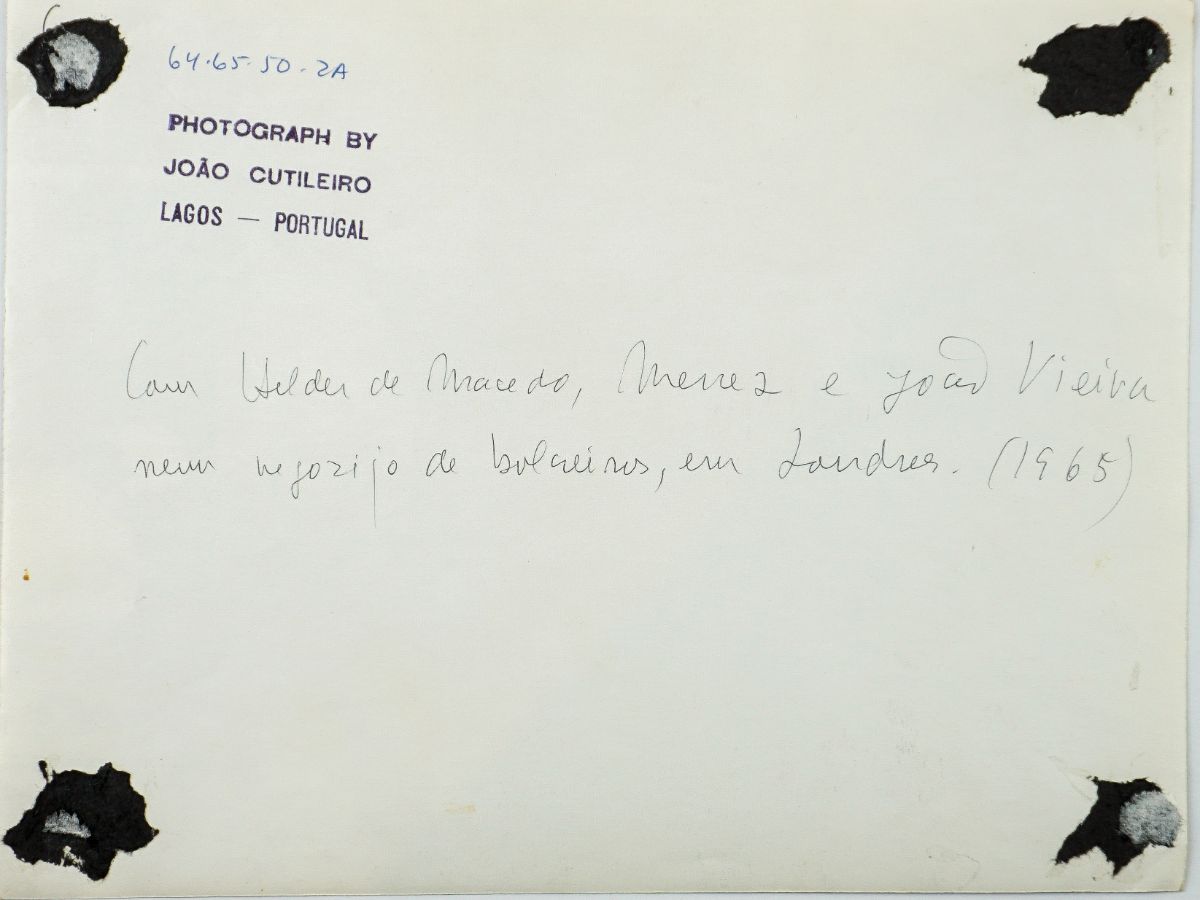 64.65.50.2A
PHOTOGRAPH BY
JOÃO CUTILEIRO
LAGOS — PORTUGAL
Com Helder de Macedo, Menez e João Vieira
num regozijo de bolseiros, em Londres. (1965)